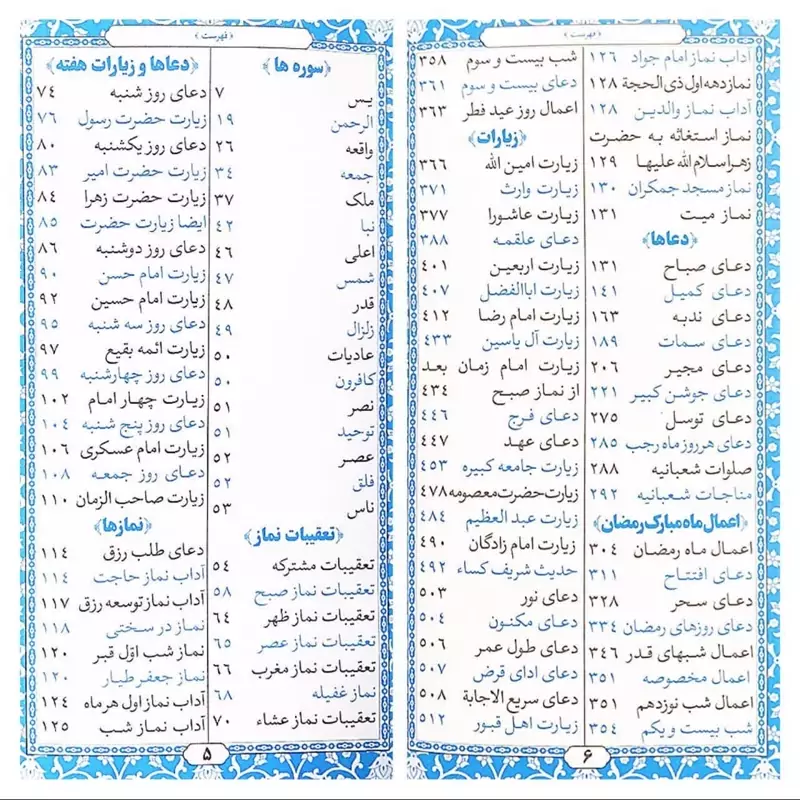 ﴿ فهرست ﴾
﴿سوره ها﴾
یس ۷
الرحمن ۱۹
واقعه ۲۶
جمعه ۳۴
ملک ۳۷
نبا ۴۲
اعلی ۴۶
شمس ۴۷
قدر ۴۸
زلزال ۴۹
عادیات ۵۰
کافرون ۵۰
نصر ۵۱
توحید ۵۱
عصر ۵۲
فلق ۵۲
ناس ۵۳
﴿تعقیبات نماز﴾
تعقیبات مشترکه ۵۴
تعقیبات نماز صبح ۵۸
تعقیبات نماز ظهر ۶۴
تعقیبات نماز عصر ۶۵
تعقیبات نماز مغرب ۶۶
نماز غفیله ۶۸
تعقیبات نماز عشاء ۷۰
﴿دعاها و زیارات هفته﴾
دعای روز شنبه ۷۴
زیارت حضرت رسول ۷۶
دعای روز یکشنبه ۸۰
زیارت حضرت امیر ۸۳
زیارت حضرت زهرا ۸۴
ایضا زیارت حضرت ۸۵
دعای روز دوشنبه ۸۶
زیارت امام حسن ۹۰
زیارت امام حسین ۹۲
دعای روز سه شنبه ۹۵
زیارت ائمه بقیع ۹۷
دعای روز چهارشنبه ۹۹
زیارت چهار امام ۱۰۲
دعای روز پنج شنبه ۱۰۴
زیارت امام عسکری ۱۰۶
دعای روز جمعه ۱۰۸
زیارت صاحب الزمان ۱۱۰
﴿نمازها﴾
دعای طلب رزق ۱۱۴
آداب نماز حاجت ۱۱۴
آداب نماز توسعه رزق ۱۱۷
نماز در سختی ۱۱۸
نماز شب اوّل قبر ۱۲۰
نماز جعفر طیار ۱۲۰
آداب نماز اول هر ماه ۱۲۴
آداب نماز شب ۱۲۵
۵
﴿ فهرست ﴾
آداب نماز امام جواد ۱۲۶
نماز دهه اول ذی الحجة ۱۲۸
آداب نماز والدین ۱۲۸
نماز استغاثه به حضرت
زهرا سلام الله علیها ۱۲۹
نماز مسجد جمکران ۱۳۰
نماز میت ۱۳۱
﴿دعاها﴾
دعای صباح ۱۳۱
دعای کمیل ۱۴۱
دعای ندبه ۱۶۳
دعای سمات ۱۸۹
دعای مجیر ۲۰۶
دعای جوشن کبیر ۲۲۱
دعای توسل ۲۷۵
دعای هر روز ماه رجب ۲۸۵
صلوات شعبانیه ۲۸۸
مناجات شعبانیه ۲۹۲
﴿اعمال ماه مبارک رمضان﴾
اعمال ماه رمضان ۳۰۴
دعای افتتاح ۳۱۱
دعای سحر ۳۲۸
دعای روزهای رمضان ۳۳۴
اعمال شبهای قدر ۳۴۶
اعمال مخصوصه ۳۵۱
اعمال شب نوزدهم ۳۵۱
شب بیست و یکم ۳۵۴
شب بیست و سوم ۳۵۸
دعای بیست و سوم ۳۶۱
اعمال روز عید فطر ۳۶۳
﴿زیارات﴾
زیارت امین الله ۳۶۶
زیارت وارث ۳۷۱
زیارت عاشورا ۳۷۷
دعای علقمه ۳۸۸
زیارت اربعین ۴۰۱
زیارت اباالفضل ۴۰۷
زیارت امام رضا ۴۱۲
زیارت آل یاسین ۴۳۳
زیارت امام زمان بعد
از نماز صبح ۴۳۴
دعای فرج ۴۴۶
دعای عهد ۴۴۷
زیارت جامعه کبیره ۴۵۳
زیارت حضرت معصومه ۴۷۸
زیارت عبد العظیم ۴۸۴
زیارت امام زادگان ۴۹۰
حدیث شریف کساء ۴۹۲
دعای نور ۵۰۳
دعای مکنون ۵۰۴
دعای طول عمر ۵۰۶
دعای ادای قرض ۵۰۷
دعای سریع الاجابة ۵۰۸
زیارت اهل قبور ۵۱۲
۶